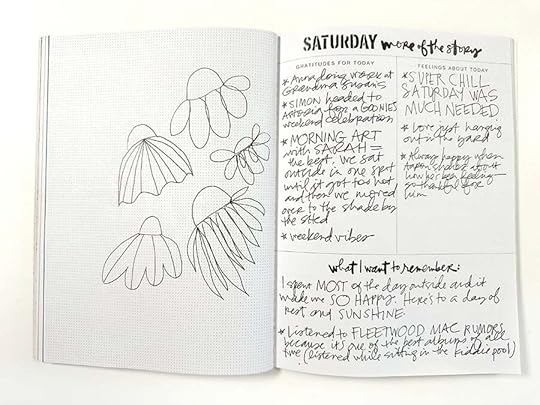 SATURDAY more of the story
GRATITUDES FOR TODAY
* Anna doing work at
Grandma Susan's
* SIMON headed to
ASTORIA for a GOONIES
weekend celebration
* MORNING ART
with SARAH =
the best. we sat
outside in one spot
until it got too hot
and then we moved
over to the shade by
the shed
* weekend vibes
FEELINGS ABOUT TODAY
* SUPER CHILL
SATURDAY WAS
MUCH NEEDED.
* Love just hanging
out in the yard
* Always happy when
Aaron shares about
how he's been feeling —
so thankful for
him
what I want to remember:
I spent MOST of the day outside and it
made me SO HAPPY. Here's to a day of
rest and SUNSHINE.
* Listened to FLEETWOOD MAC RUMORS
because it's one of the best albums of all
time (listened while sitting in the kiddie pool)